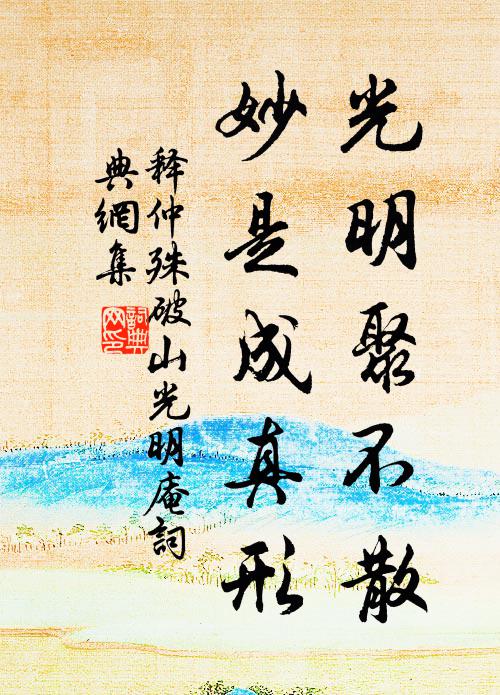 光明聚不散
妙是成真形
释仲殊破山光明庵詞
典網集
詞典
网印